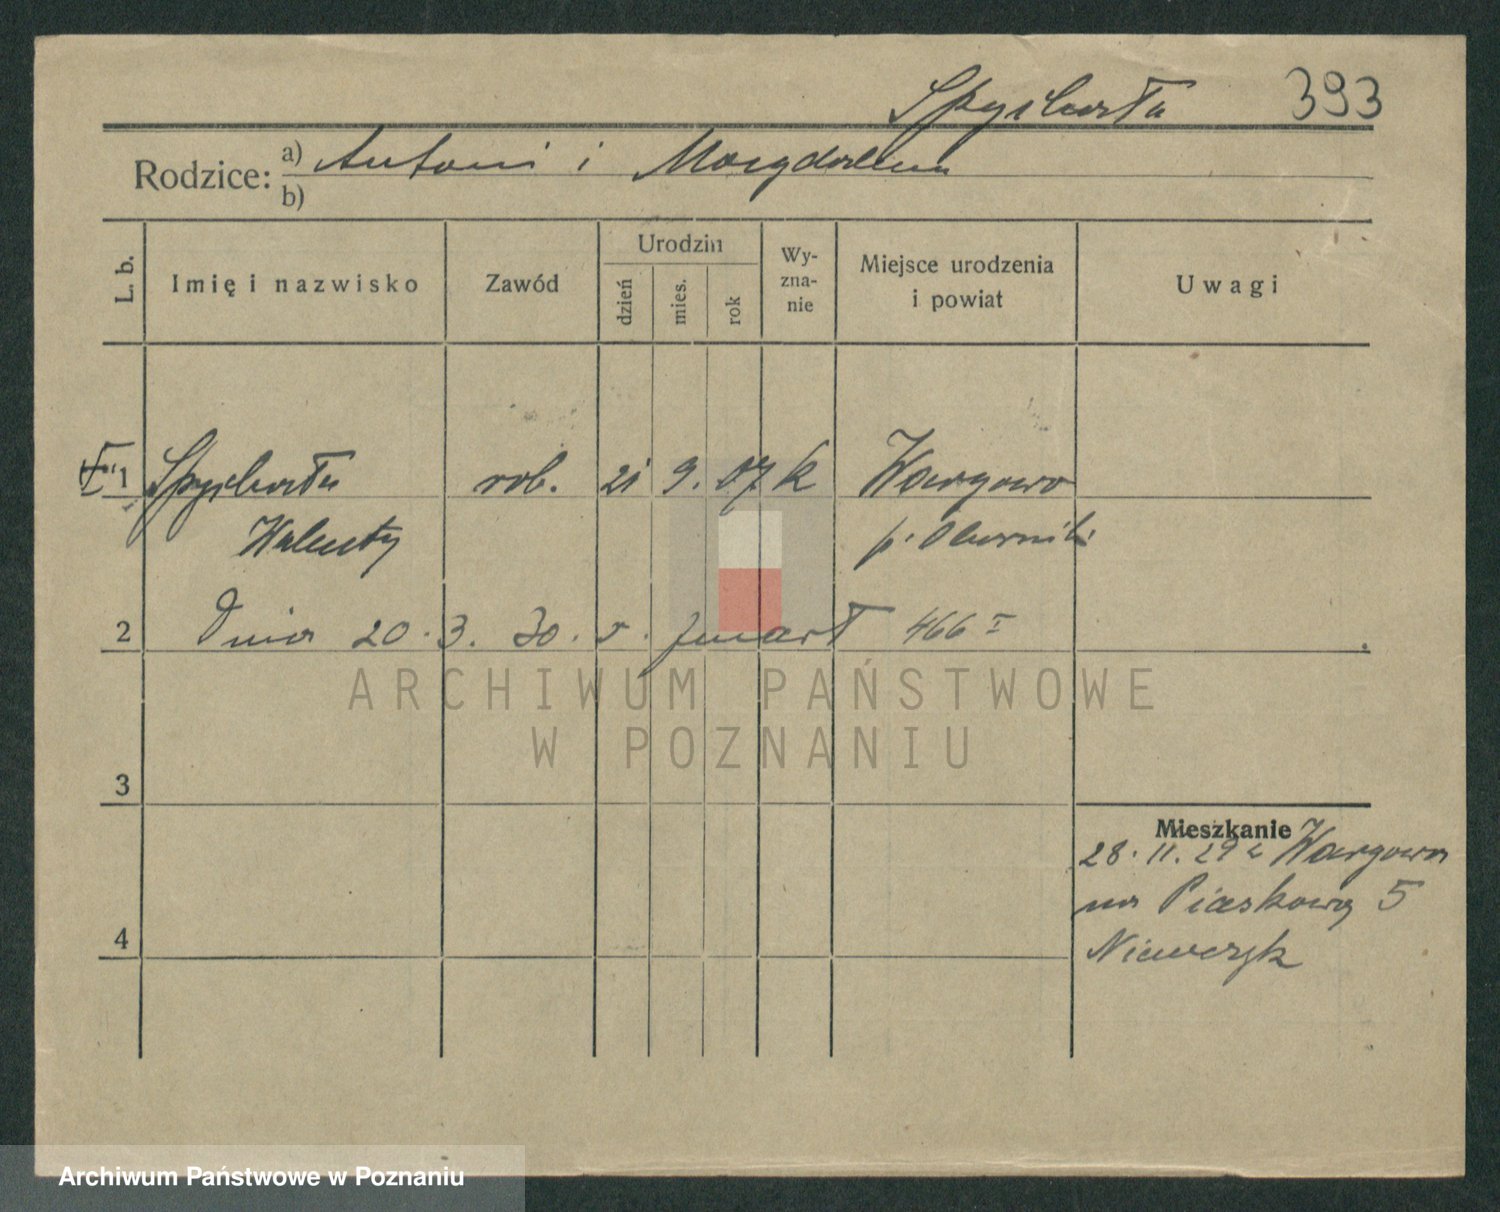 Spychała 393
Rodzice: a) Antoni i Magdalena
b)
L. b. Imię i nazwisko Zawód Urodzin dzień mies. rok Wy-zna-nie Miejsce urodzenia i powiat Uwagi
1 Spychała rob. 21 9. 07 k Wargowo
Walenty p. Oborniki
2 Dnia 20. 3. 30. r. zmarł 466 I
ARCHIWUM PAŃSTWOWE
W POZNANIU
3
Mieszkanie
28. 11. 29 z Wargowa
na Piaskową 5
4
Niewczyk
Archiwum Państwowe w Poznaniu